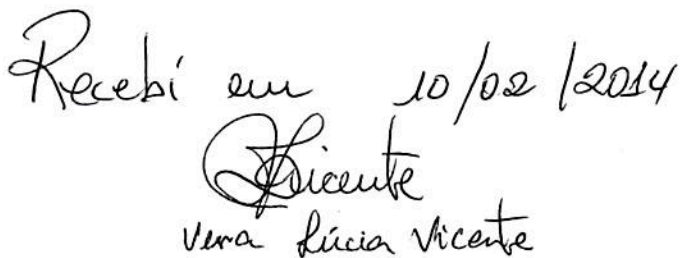 Recebí em 10/02/2014
Vicente
Vera Lúcia Vicente